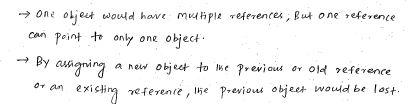 → One object would have multiple references, But one reference
can point to only one object.
→ By assigning a new object to the previous or old reference
or an existing reference, the previous object would be lost.